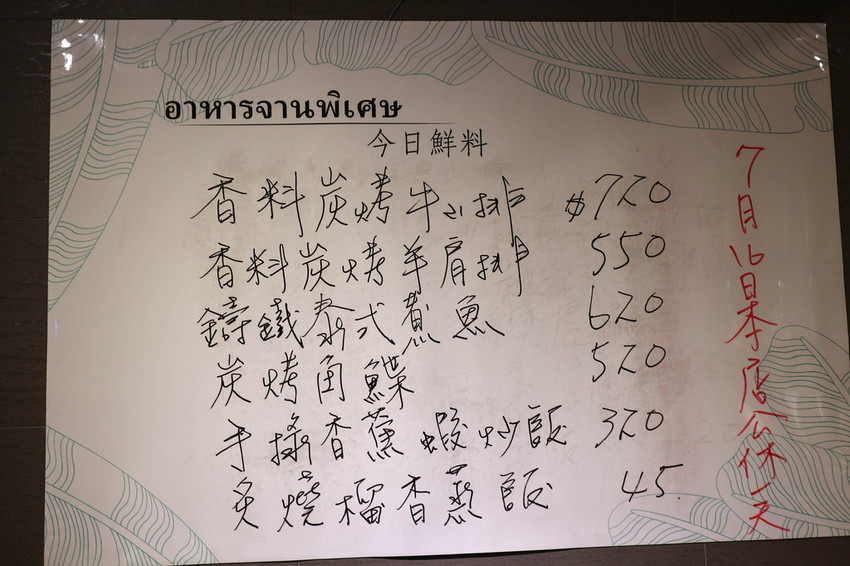 อาหารจานพิเศษ
今日鮮料
香料炭烤牛小排 $720
香料炭烤羊肩排 550
鑄鐵泰式煮魚 620
炭烤角鰈 520
手搡香蕉蝦炒飯 320
炙燒榴香蒸飯 45.
7月16日本店公休一天